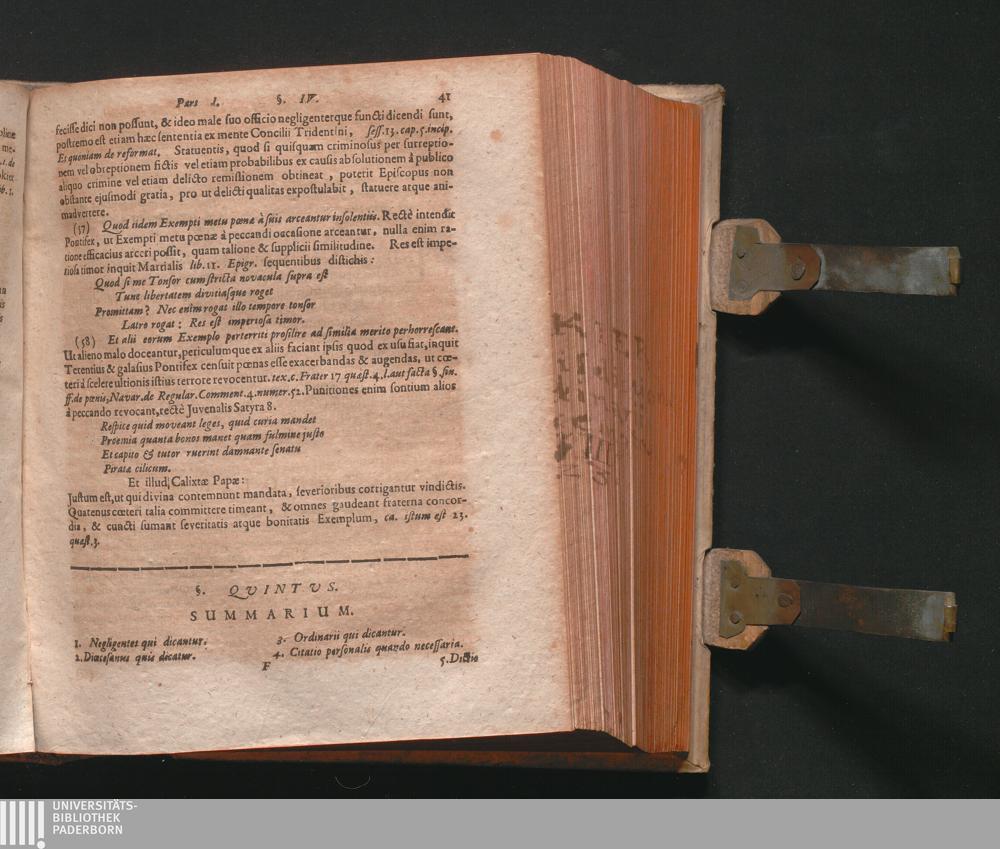 Pars I. §. IV. 41
fecisse dici non possunt, & ideo male suo officio negligenterque functi dicendi sunt,
postremo est etiam hæc sententia ex mente Concilii Tridentini, sess. 13. cap. 5. incip.
Et quoniam de reformat. Statuentis, quod si quisquam criminosus per surreptio-
nem vel obreptionem fictis vel etiam probabilibus ex causis absolutionem à publico
aliquo crimine vel etiam delicto remissionem obtineat, poterit Episcopus non
obstante ejusmodi gratia, pro ut delicti qualitas expostulabit, statuere atque ani-
madvertere.
(57) Quod iidem Exempti metu pœnæ à suis arceantur insolentiis. Rectè intendit
Pontifex, ut Exempti metu pœnæ à peccandi occasione arceantur, nulla enim ra-
tione efficacius arceri possit, quam talione & supplicii similitudine. Res est impe-
riosa timor inquit Martialis lib. 11. Epigr. sequentibus distichis:
Quod si me Tonsor cum stricta novacula supra est
Tunc libertatem divitiasque roget
Promittam? Nec enim rogat illo tempore tonsor
Latro rogat: Res est imperiosa timor.
(58) Et alii eorum Exemplo perterriti prosilire ad similia merito perhorrescant.
Ut alieno malo doceantur, periculumque ex aliis faciant ipsis quod ex usu fiat, inquit
Terentius & galasius Pontifex censuit pœnas esse exacerbandas & augendas, ut cœ-
teri à scelere ultionis istius terrore revocentur. tex. c. Frater 17 quæst. 4. l. aut facta §. fin.
ff. de pœnis, Navar. de Regular. Comment. 4. numer. 52. Punitiones enim sontium alios
à peccando revocant, rectè Juvenalis Satyra 8.
Respice quid moveant leges, quid curia mandet
Proemia quanta bonos manet quam fulmine justo
Et capito & tutor ruerint damnante senatu
Piratæ cilicum.
Et illud Calixtæ Papæ:
Justum est, ut qui divina contemnunt mandata, severioribus corrigantur vindictis.
Quatenus cœteri talia committere timeant, & omnes gaudeant fraterna concor-
dia, & cuncti sumant severitatis atque bonitatis Exemplum, ca. istum est 23.
quæst. 3.
§. QVINTVS.
SUMMARIUM.
1. Negligentes qui dicantur.
2. Diœcesanus quis dicatur.
3. Ordinarii qui dicantur.
4. Citatio personalis quando necessaria.
F 5. Dictio
UNIVERSITÄTS-
BIBLIOTHEK
PADERBORN